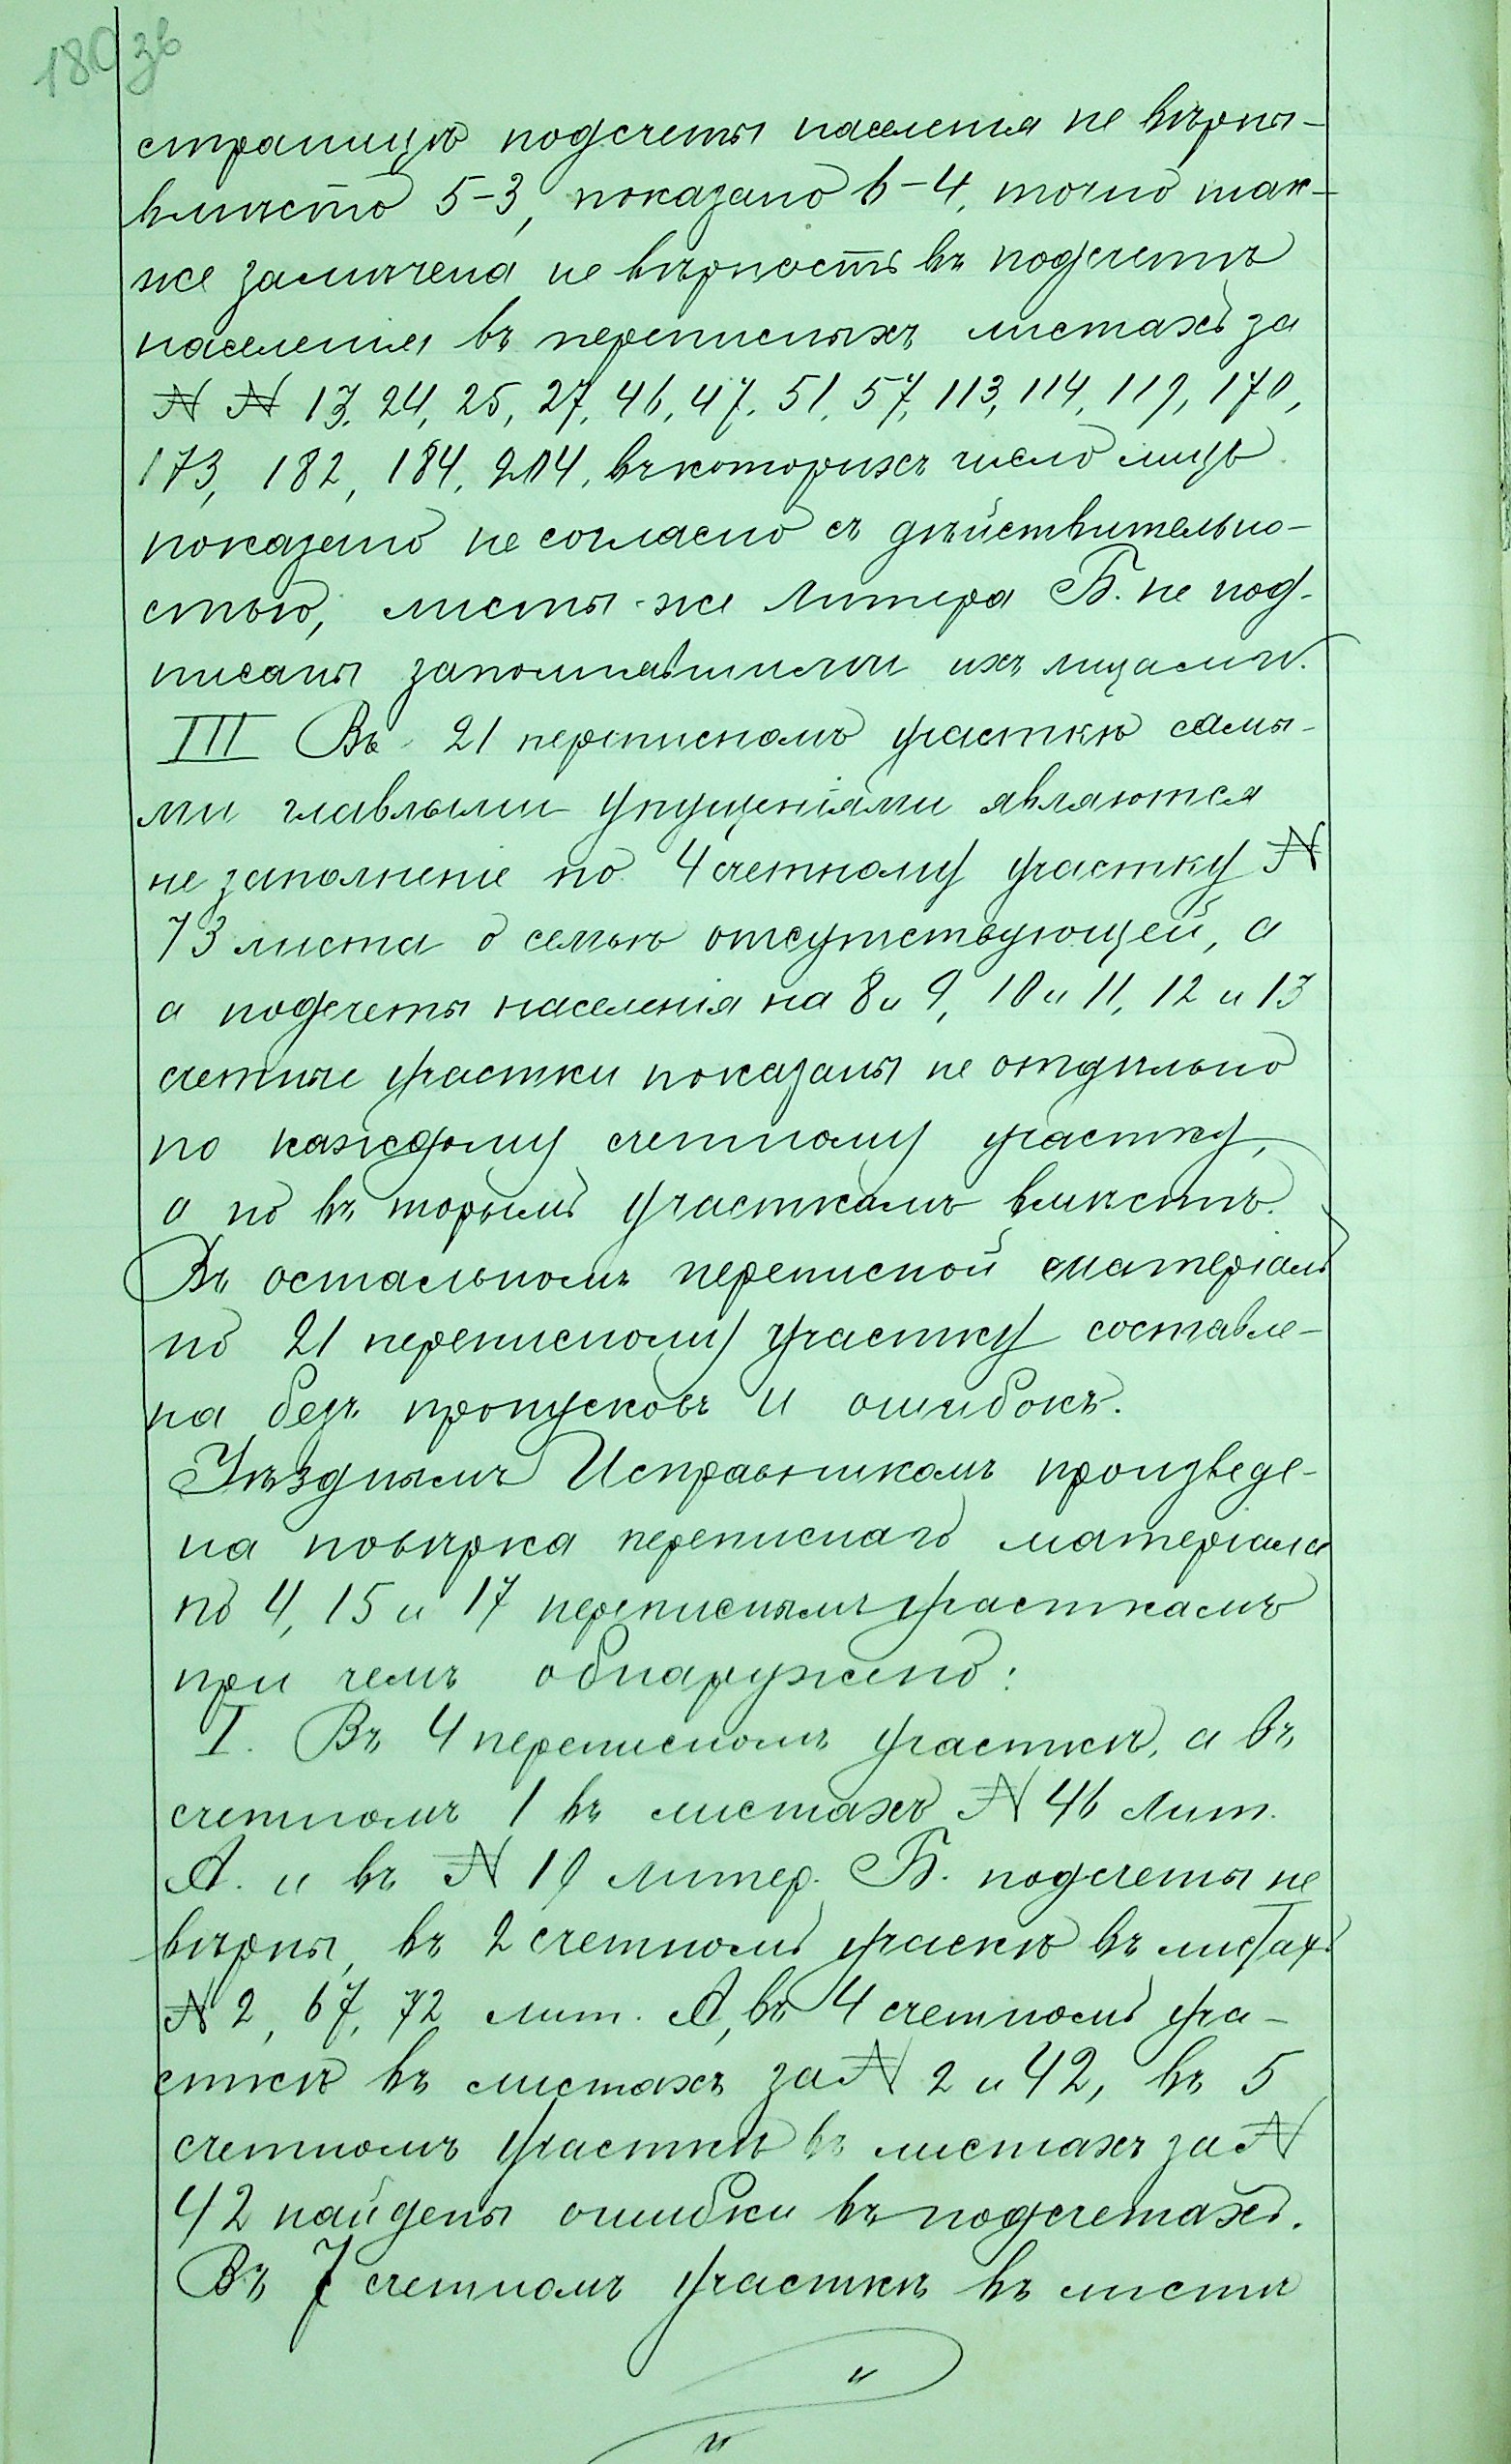 180 зв
страницѣ подсчеты населенія не вѣрны-
вмѣсто 5-3, показано 6-4, точно так-
же замѣчена не вѣрность въ подсчетѣ
населенія въ переписныхъ листахъ за
№ № 13, 24, 25, 27, 46, 47, 51, 57, 113, 114, 119, 170,
173, 182, 184, 204, въ которыхъ число лицъ
показано не согласно съ дѣйствительно-
стью, листы-же Литера Б. не под-
писаны заполнявшими ихъ лицами.
III Въ 21 переписномъ участкѣ самы-
ми главными упущеніями являются
не заполненіе по 4 счетному участку №
73 листа о семьѣ отсутствующей, а
а подсчеты населенія на 8 и 9, 10 и 11, 12 и 13
счетные участки показаны не отдѣльно
по каждому счетному участку,
а по въ торымъ участкамъ вмѣстѣ.
Въ остальномъ переписной матеріалъ
по 21 переписному участку составле-
на безъ пропусковъ и ошибокъ.
Уѣзднымъ Исправникомъ произведе-
на повѣрка переписнаго матеріала
по 4, 15 и 17 переписнымъ участкамъ
при чемъ обнаружено:
I. Въ 4 переписномъ участкѣ, а въ
счетномъ 1 въ листахъ № 46 Лит.
А. и въ № 19 литер. Б. подсчеты не
вѣрны, въ 2 счетномъ учаскѣ въ листахъ
№ 2, 67, 72 лит. А, въ 4 счетномъ уча-
сткѣ въ листахъ за № 2 и 42, въ 5
счетномъ участкѣ въ листахъ за №
42 найдены ошибки въ подсчетахъ.
Въ 7 счетномъ участкѣ въ листѣ